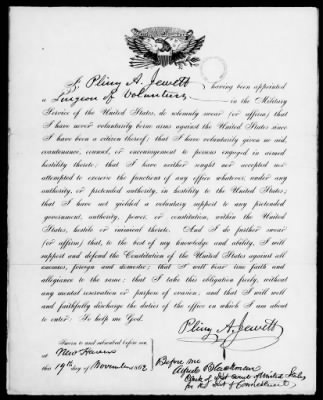 I, Pliny A. Jewett having been appointed
a Surgeon of Volunteers in the Military
Service of the United States, do solemnly swear (or affirm) that
I have never voluntarily borne arms against the United States since
I have been a citizen thereof; that I have voluntarily given no aid,
countenance, counsel, or encouragement to persons engaged in armed
hostility thereto; that I have neither sought nor accepted nor
attempted to exercise the functions of any office whatever, under any
authority, or pretended authority, in hostility to the United States;
that I have not yielded a voluntary support to any pretended
government, authority, power, or constitution, within the United
States, hostile or inimical thereto. And I do further swear
(or affirm) that, to the best of my knowledge and ability, I will
support and defend the Constitution of the United States against all
enemies, foreign and domestic; that I will bear true faith and
allegiance to the same; that I take this obligation freely, without
any mental reservation or purpose of evasion; and that I will well
and faithfully discharge the duties of the office on which I am about
to enter: So help me God.
Pliny A. Jewett
Sworn to and subscribed before me
at New Haven
this 19th day of November 1862
Before me
Alfred Blackman
Clerk of Dist Court United States
for the Dist of Connecticut